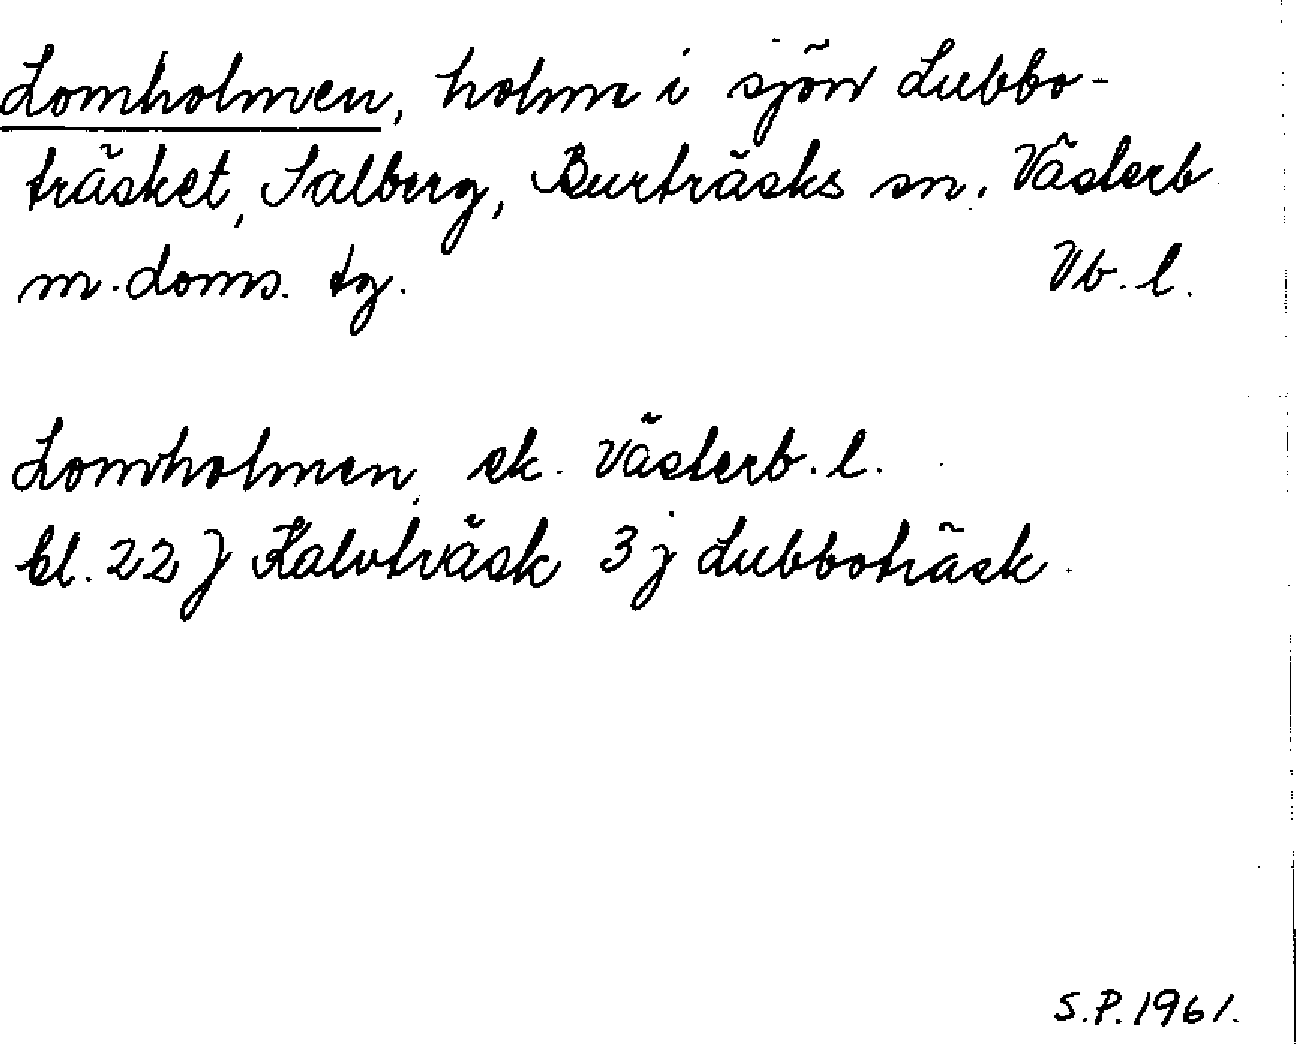 Lomholmen, holme i sjön Lubbo-
träsket, Salberg, Burträsks sn. Västerb
m. doms. tg. Vb. l.
Lomholmen ek. Västerb. l.
bl. 22 J Kalvträsk 3 j Lubboträsk
S.P. 1961.